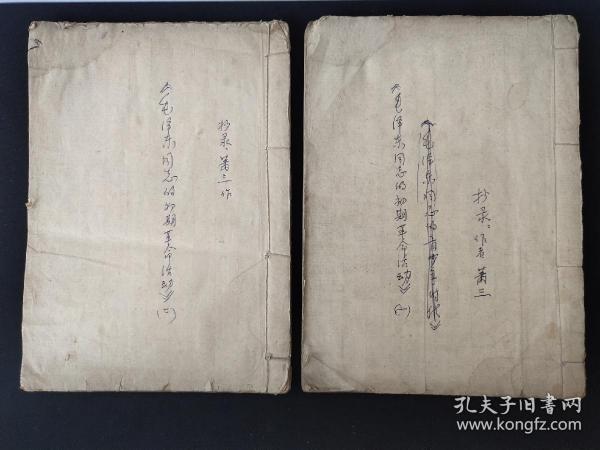 抄录:萧三作
《毛泽东同志的初期革命活动》(二)
抄录:作者萧三
《毛泽东同志的青少年时代》
《毛泽东同志的初期革命活动》(一)
孔夫子旧书网
www.kongfz.com